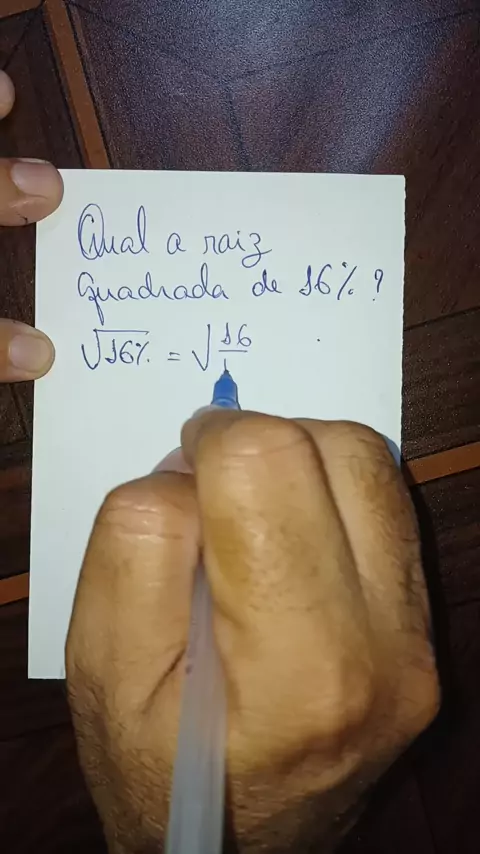 Qual a raiz
quadrada de 16% ?
√16% = √16/1